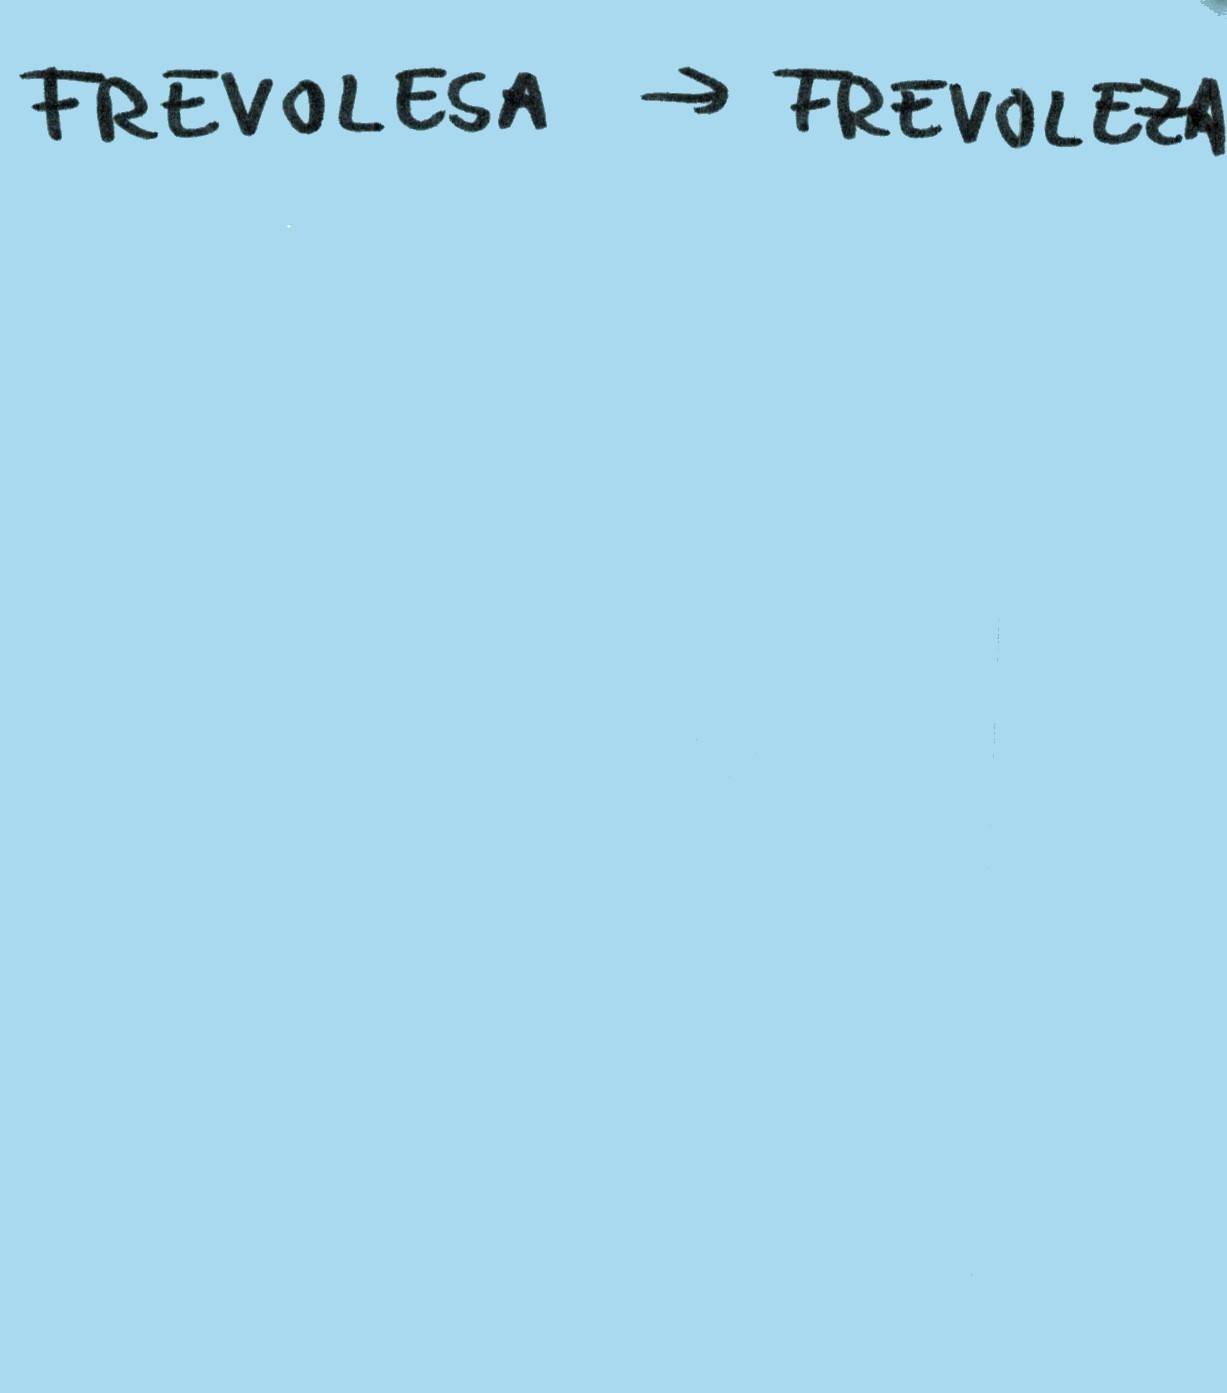 FREVOLESA → FREVOLEZA